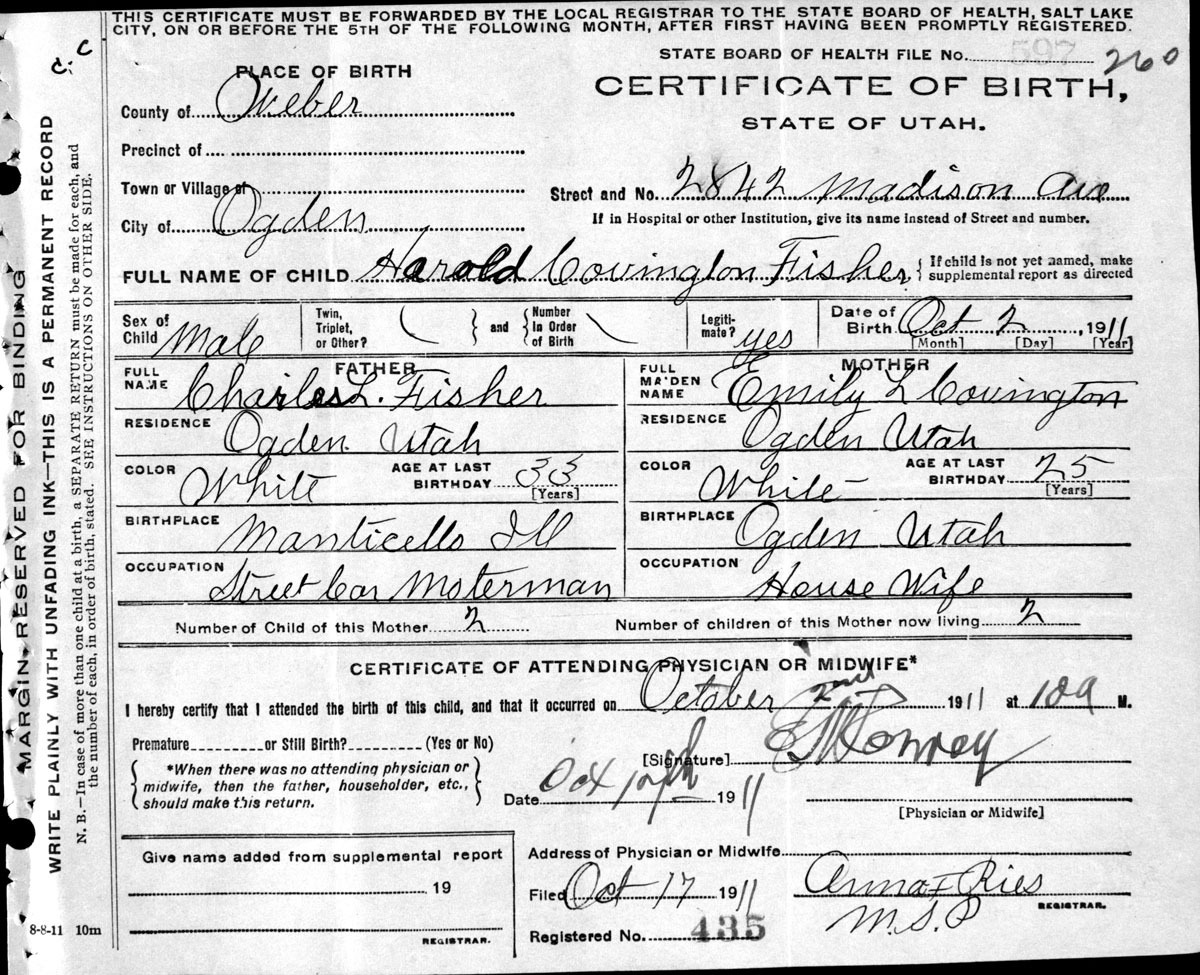 THIS CERTIFICATE MUST BE FORWARDED BY THE LOCAL REGISTRAR TO THE STATE BOARD OF HEALTH, SALT LAKE
CITY, ON OR BEFORE THE 5TH OF THE FOLLOWING MONTH, AFTER FIRST HAVING BEEN PROMPTLY REGISTERED.
STATE BOARD OF HEALTH FILE No. 597 260
C. C
PLACE OF BIRTH
CERTIFICATE OF BIRTH,
STATE OF UTAH.
County of Weber
Precinct of
Town or Village of
Street and No. 2842 Madison Ave
City of Ogden
If in Hospital or other Institution, give its name instead of Street and number.
FULL NAME OF CHILD Harold Covington Fisher { If child is not yet named, make
supplemental report as directed
Sex of Child Male
Twin, Triplet, or Other? ( } and { Number In Order of Birth \
Legiti-mate? yes
Date of Birth Oct 2, 1911
[Month] [Day] [Year]
FATHER
FULL NAME Charles L. Fisher
RESIDENCE Ogden Utah
COLOR White AGE AT LAST BIRTHDAY 33
[Years]
BIRTHPLACE Manticello Ill
OCCUPATION Street Car Moterman
MOTHER
FULL MAIDEN NAME Emily L Covington
RESIDENCE Ogden Utah
COLOR White AGE AT LAST BIRTHDAY 25
[Years]
BIRTHPLACE Ogden Utah
OCCUPATION House Wife
Number of Child of this Mother 2 Number of children of this Mother now living 2
CERTIFICATE OF ATTENDING PHYSICIAN OR MIDWIFE*
I hereby certify that I attended the birth of this child, and that it occurred on October 2nd 1911 at 10 a M.
Premature or Still Birth? (Yes or No)
{ *When there was no attending physician or
midwife, then the father, householder, etc.,
should make this return. }
[Signature] Conroy
Date Oct 1911
[Physician or Midwife]
Give name added from supplemental report
19
REGISTRAR.
Address of Physician or Midwife
Filed Oct 17 1911 Anna F Ries
REGISTRAR.
M.S.P
Registered No. 435
8-8-11 10m
MARGIN RESERVED FOR BINDING
WRITE PLAINLY WITH UNFADING INK—THIS IS A PERMANENT RECORD
N. B.—In case of more than one child at a birth, a SEPARATE RETURN must be made for each, and
the number of each, in order of birth, stated. SEE INSTRUCTIONS ON OTHER SIDE.